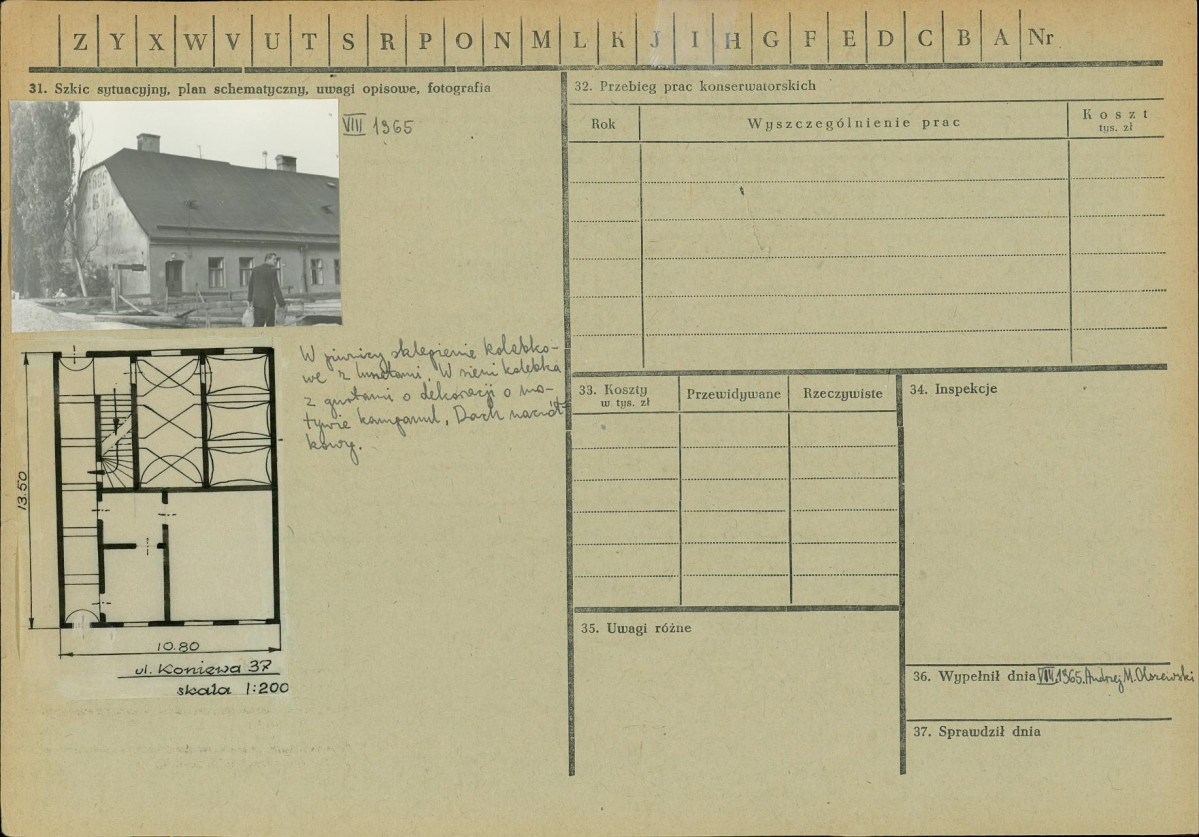 Z Y X W V U T S R P O N M L K J I H G F E D C B A Nr
31. Szkic sytuacyjny, plan schematyczny, uwagi opisowe, fotografia
VIII 1965
W piwnicy sklepienie kolebko-
we z lunetami. W sieni kolebka
z gurtami o dekoracji o mo-
tywie kampanul. Dach naczół-
kowy.
13.50
10.80
ul. Koniewa 37
skala 1:200
32. Przebieg prac konserwatorskich
Rok
Wyszczególnienie prac
Koszt
tys. zł
33. Koszty
w tys. zł
Przewidywane
Rzeczywiste
34. Inspekcje
35. Uwagi różne
36. Wypełnił dnia VIII.1965. Andrzej M. Olszewski
37. Sprawdził dnia